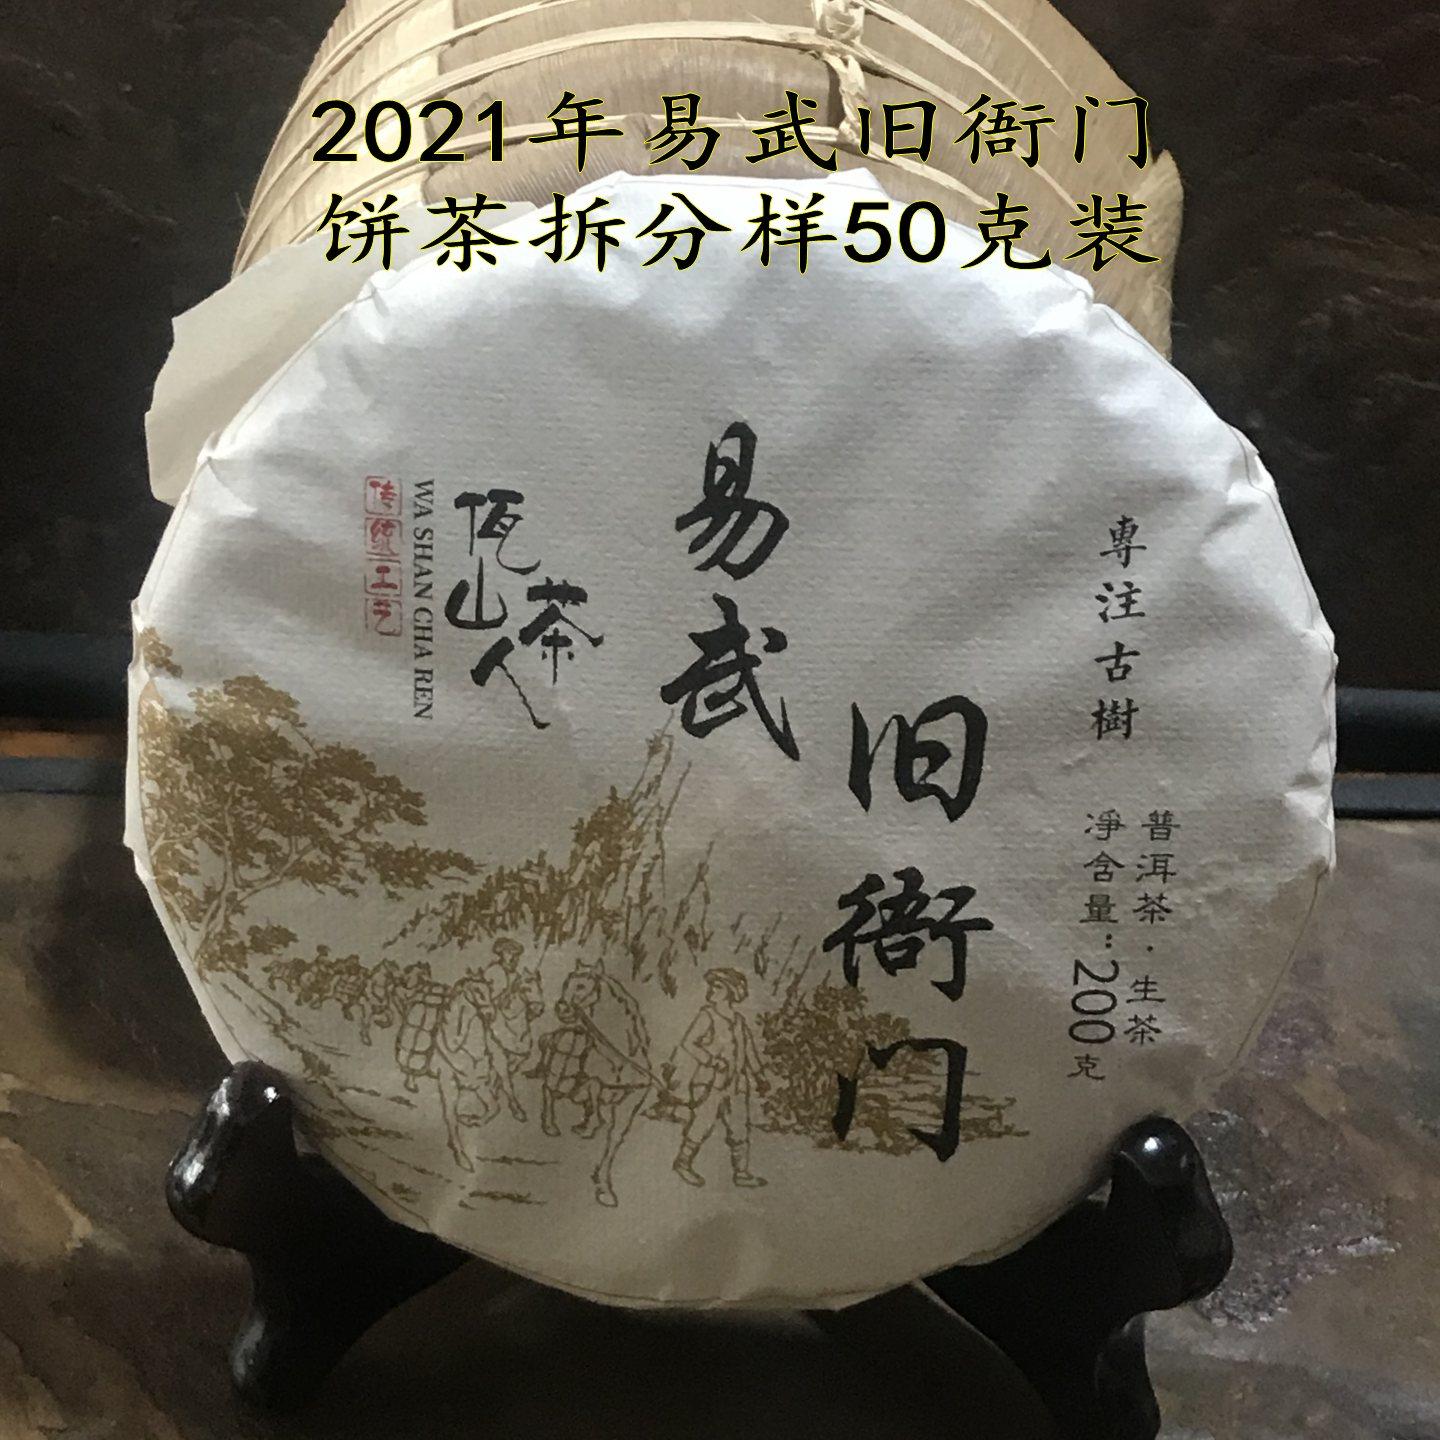 2021年易武旧衙门
饼茶拆分样50克装
專注古樹
普洱茶·生茶
凈含量:200克
易武
旧衙门
佤山茶人
WA SHAN CHA REN
传统工艺